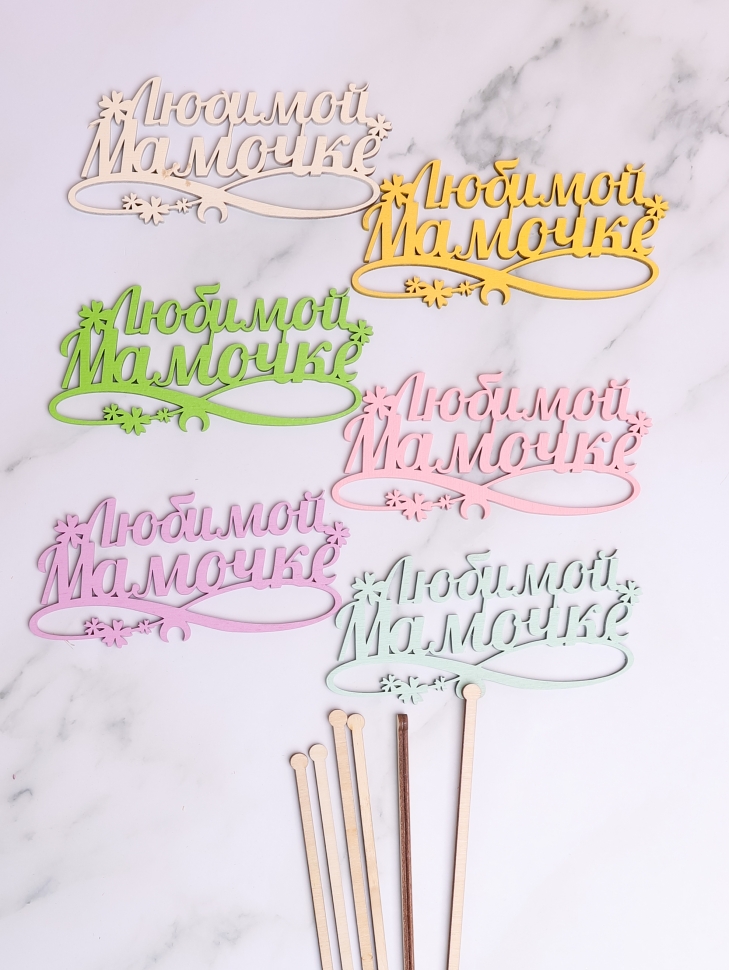 Любимой
Мамочке
Любимой
Мамочке
Любимой
Мамочке
Любимой
Мамочке
Любимой
Мамочке
Любимой
Мамочке